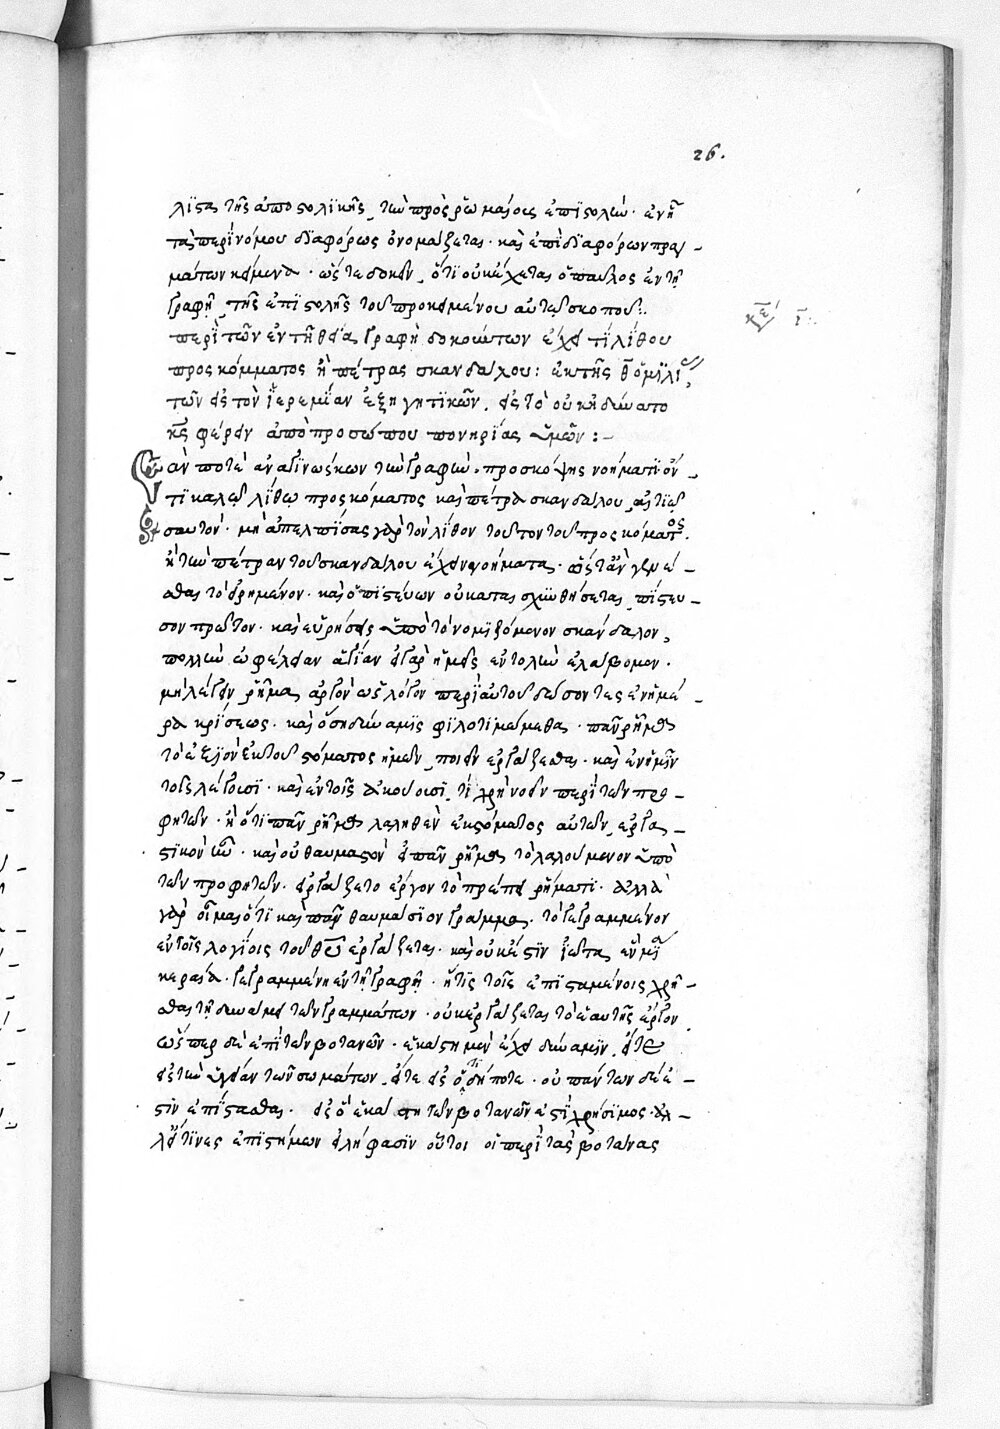 26.
λϊστα τῆς ἀποστολϊκῆς, τὴν πρὸς ῥωμαίους ἐπϊστολήν· ἐν ᾗ
τὰ περὶ νόμου διαφόρως ὀνομάζεται· καὶ ἐπὶ διαφόρων πραγ-
μάτων κείμενα· ὥστε δοκεῖν, ὅτι οὐκ ἔχεται ὁ παῦλος ἐν τῇ
γραφῇ τῆς ἐπϊστολῆς τοῦ προκειμένου αὐτῷ σκοποῦ:.
κεφ ι:.
περὶ τῶν ἐν τῇ θεία γραφῇ δοκούντων ἔχειν τϊ λίθου
προσκόμματος ἢ πέτρας σκανδάλου: ἐκ τῆς θ ὁμϊλι
τῶν εἰς τὸν ἰερεμίαν ἐξηγητϊκῶν, εἰς τὸ οὐκ ἠδύνατο
κς φέρειν ἀπὸ προσώπου πονηρίας ὑμῶν:-
ἐὰν ποτὲ ἀναγϊνώσκων τὴν γραφὴν, προσκόψης νοήματϊ ὄν-
τϊ καλῷ λίθω προσκόματος καὶ πέτρα σκανδάλου, αἰτιῶ
σαυτόν· μὴ ἀπελπϊσας γὰρ τὸν λίθον τοῦτον τοῦ προσκόματος.
κ τὴν πέτραν τοῦ σκανδάλου ἔχειν νοήματα· ὥστ ἂν γενέ-
σθαι τὸ εἰρημένον· καὶ ὁ πϊστεύων οὐ καταισχϋνθήσεται, πίστευ-
σον πρῶτον· καὶ εὑρήσεις ὑπὸ τὸ νομϊζόμενον σκάνδαλον,
πολλὴν ὠφέλειαν ἁγίαν εἰ γὰρ ἡμεῖς ἐντολὴν ἐλάβομεν·
μὴ λέγειν ῥῆμα ἀργὸν ὡς λόγον περὶ αὐτοῦ δώσοντες ἐν ἡμέ-
ρα κρίσεως· καὶ ὅση δύναμϊς φϊλοτϊμούμεθα· πᾶν ῥῆμα
τὸ ἐξϊὸν ἐκ τοῦ στόματος ἡμῶν, ποιεῖν ἐργάζεσθαι· καὶ ἐν ἡμῖν
τοῖς λέγουσϊ· καὶ ἐν τοῖς ἀκούουσϊ, τί χρὴ νοεῖν περὶ τῶν προ-
φητῶν· ἢ ὅτϊ πᾶν ῥῆμα λαληθὲν ἐκ στόματος αὐτῶν, ἐργα-
στϊκὸν ἦν· καὶ οὐ θαυμαστὸν εἰ πᾶν ῥῆμα τὸ λαλούμενον ὑπὸ
τῶν προφητῶν· εἰργάζετο ἔργον τὸ πρέπον ῥήματϊ· ἀλλὰ
γὰρ οἶμαι ὅτϊ καὶ πᾶν θαυμάσϊον γράμμα· τὸ γεγραμμένον
ἐν τοῖς λογίοις τοῦ θυ ἐργάζεται· καὶ οὐκ ἔστϊν ἰῶτα ἓν ἢ μία
κεραία· γεγραμμένη ἐν τῇ γραφῇ· ἥτϊς τοῖς ἐπϊσταμένοις χρῆ-
σθαι τῇ δυνάμει τῶν γραμμάτων· οὐκ ἐργάζεται τὸ ἑαυτῆς ἔργον
ὥσπερ δὲ ἐπὶ τῶν βοτανῶν· ἑκάστη μὲν ἔχει δύναμϊν, εἴτε
εἰς τὴν ὑγείαν τῶν σωμάτων, εἴτε εἰς ὁτιδήποτε· οὐ πάντων δέ ἐ-
στϊν ἐπϊστασθαι. εἰς ὃ ἑκάστη τῶν βοτανῶν ἐστϊ χρήσϊμος· ἀλ-
λ εἴτϊνες ἐπϊστήμην εἰλήφασϊν οὗτοι οἱ περὶ τὰς βοτάνας